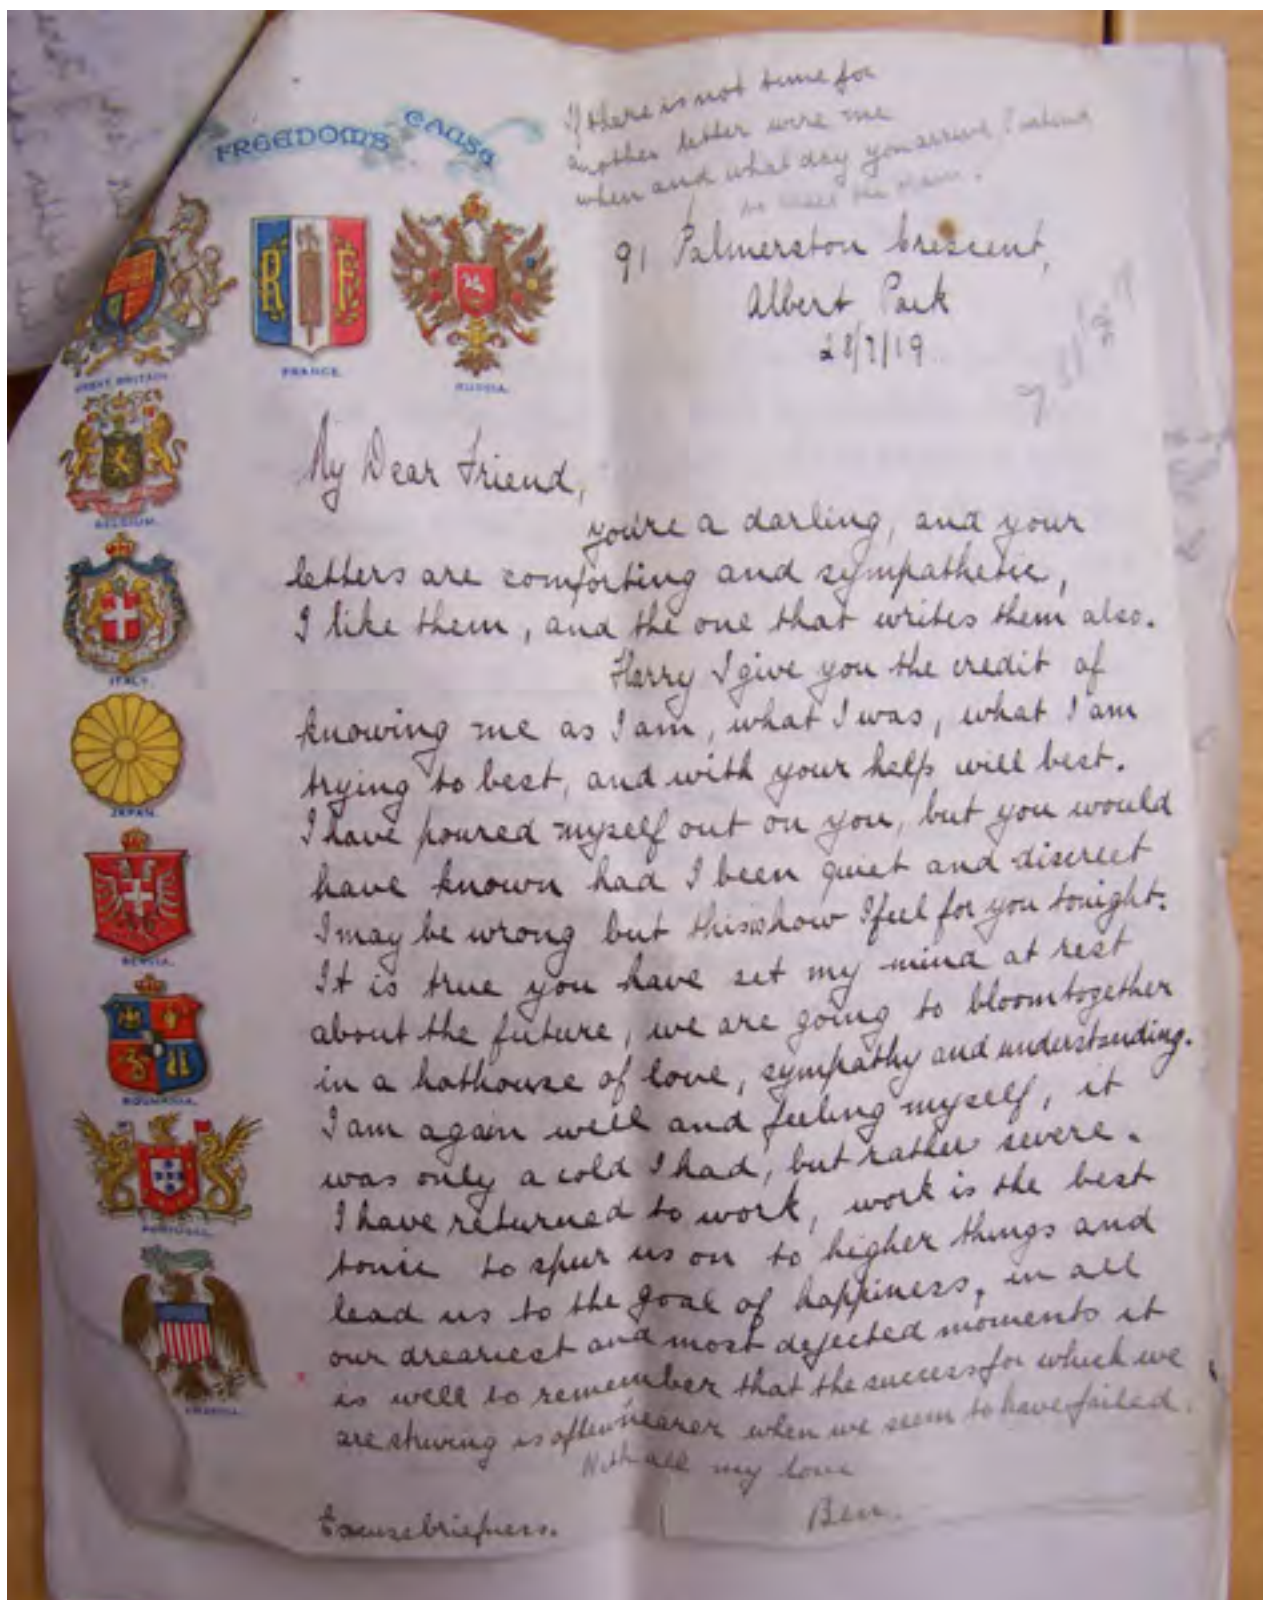 FREEDOM'S CAUSE
If there is not time for
another letter wire me
when and what day you arrive, I intend
to meet the
91 Palmerston Crescent,
Albert Park
28/7/19.
GREAT BRITAIN.
FRANCE.
RUSSIA.
BELGIUM.
ITALY.
JAPAN.
SERVIA.
ROUMANIA.
PORTUGAL.
My Dear Friend,
you're a darling, and your
letters are comforting and sympathetic,
I like them, and the one that writes them also.
Harry I give you the credit of
knowing me as I am, what I was, what I am
trying to best, and with your help will best.
I have poured myself out on you, but you would
have known had I been quiet and discreet
I may be wrong but this is how I feel for you tonight.
It is true you have set my mind at rest
about the future, we are going to bloom together
in a hothouse of love, sympathy and understanding.
I am again well and feeling myself, it
was only a cold I had, but rather severe.
I have returned to work, work is the best
tonic to spur us on to higher things and
lead us to the goal of happiness, in all
our dreariest and most dejected moments it
is well to remember that the success for which we
are striving is often nearer when we seem to have failed.
With all my love
Ben.
Excuse briefness.